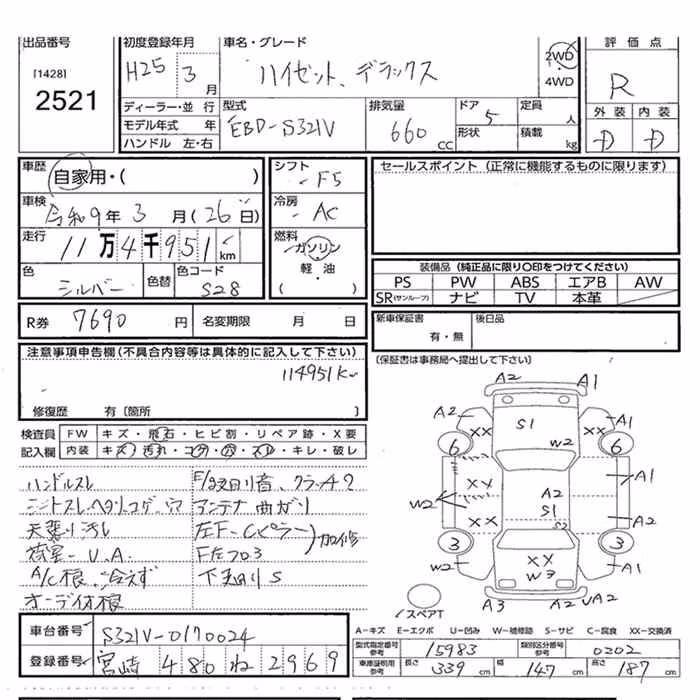 出品番号
[1428]
2521
初度登録年月
H25 3月
車名・グレード
ハイゼット、デラックス
2WD
4WD
評価点
R
ディーラー・並 行
モデル年式 年
ハンドル 左・右
型式
EBD-S321V
排気量
660 CC
ドア
5
形状
定員
人
積載
kg
外装 内装
D D
車歴
自家用・( )
車検
令和9年3月(26日)
走行
11万4千951km
色
シルバー
色替
色コード
S28
シフト
F5
冷房
AC
燃料
ガソリン
軽・油
( )
セールスポイント(正常に機能するものに限ります)
装備品(純正品に限り〇印をつけてください)
PS PW ABS エアB AW
SR(サンルーフ) ナビ TV 本革
R券 7690 円 名変期限 月 日
新車保証書
有・無
後日品
(保証書は事務局へ提出して下さい)
注意事項申告欄(不具合内容等は具体的に記入して下さい)
114951K
修復歴 有(箇所 )
検査員
記入欄
FW キズ・飛石・ヒビ割・リペア跡・X要
内装 キズ・汚れ・コゲ・穴・スレ・キレ・破レ
ハンドルスレ
シートスレ、ヘタリ、コゲ、穴
天張り汚レ
荷室-U.A.
A/C根、冷えず
オーディオ根
アンテナ曲がり
左F-Cピラー
F左フロ3
加修
下廻りS
A2 A1
A2 XX S1 XX A1
W2
6 6
XX A1
W2 A2
XX S1 A2
S2
3 3
W2 XX A2
W3
A3 A2 UA2
スペアT
A-キズ E-エクボ U-凹み W-補修跡 S-サビ C-腐食 XX-交換済
車台番号 S321V-0170024
登録番号 宮崎 480 ね 2969
型式指定番号
参考
15983
類別区分番号
参考
0202
車庫証明用
参考
長さ 339 cm 幅 147 cm 高さ 187 cm